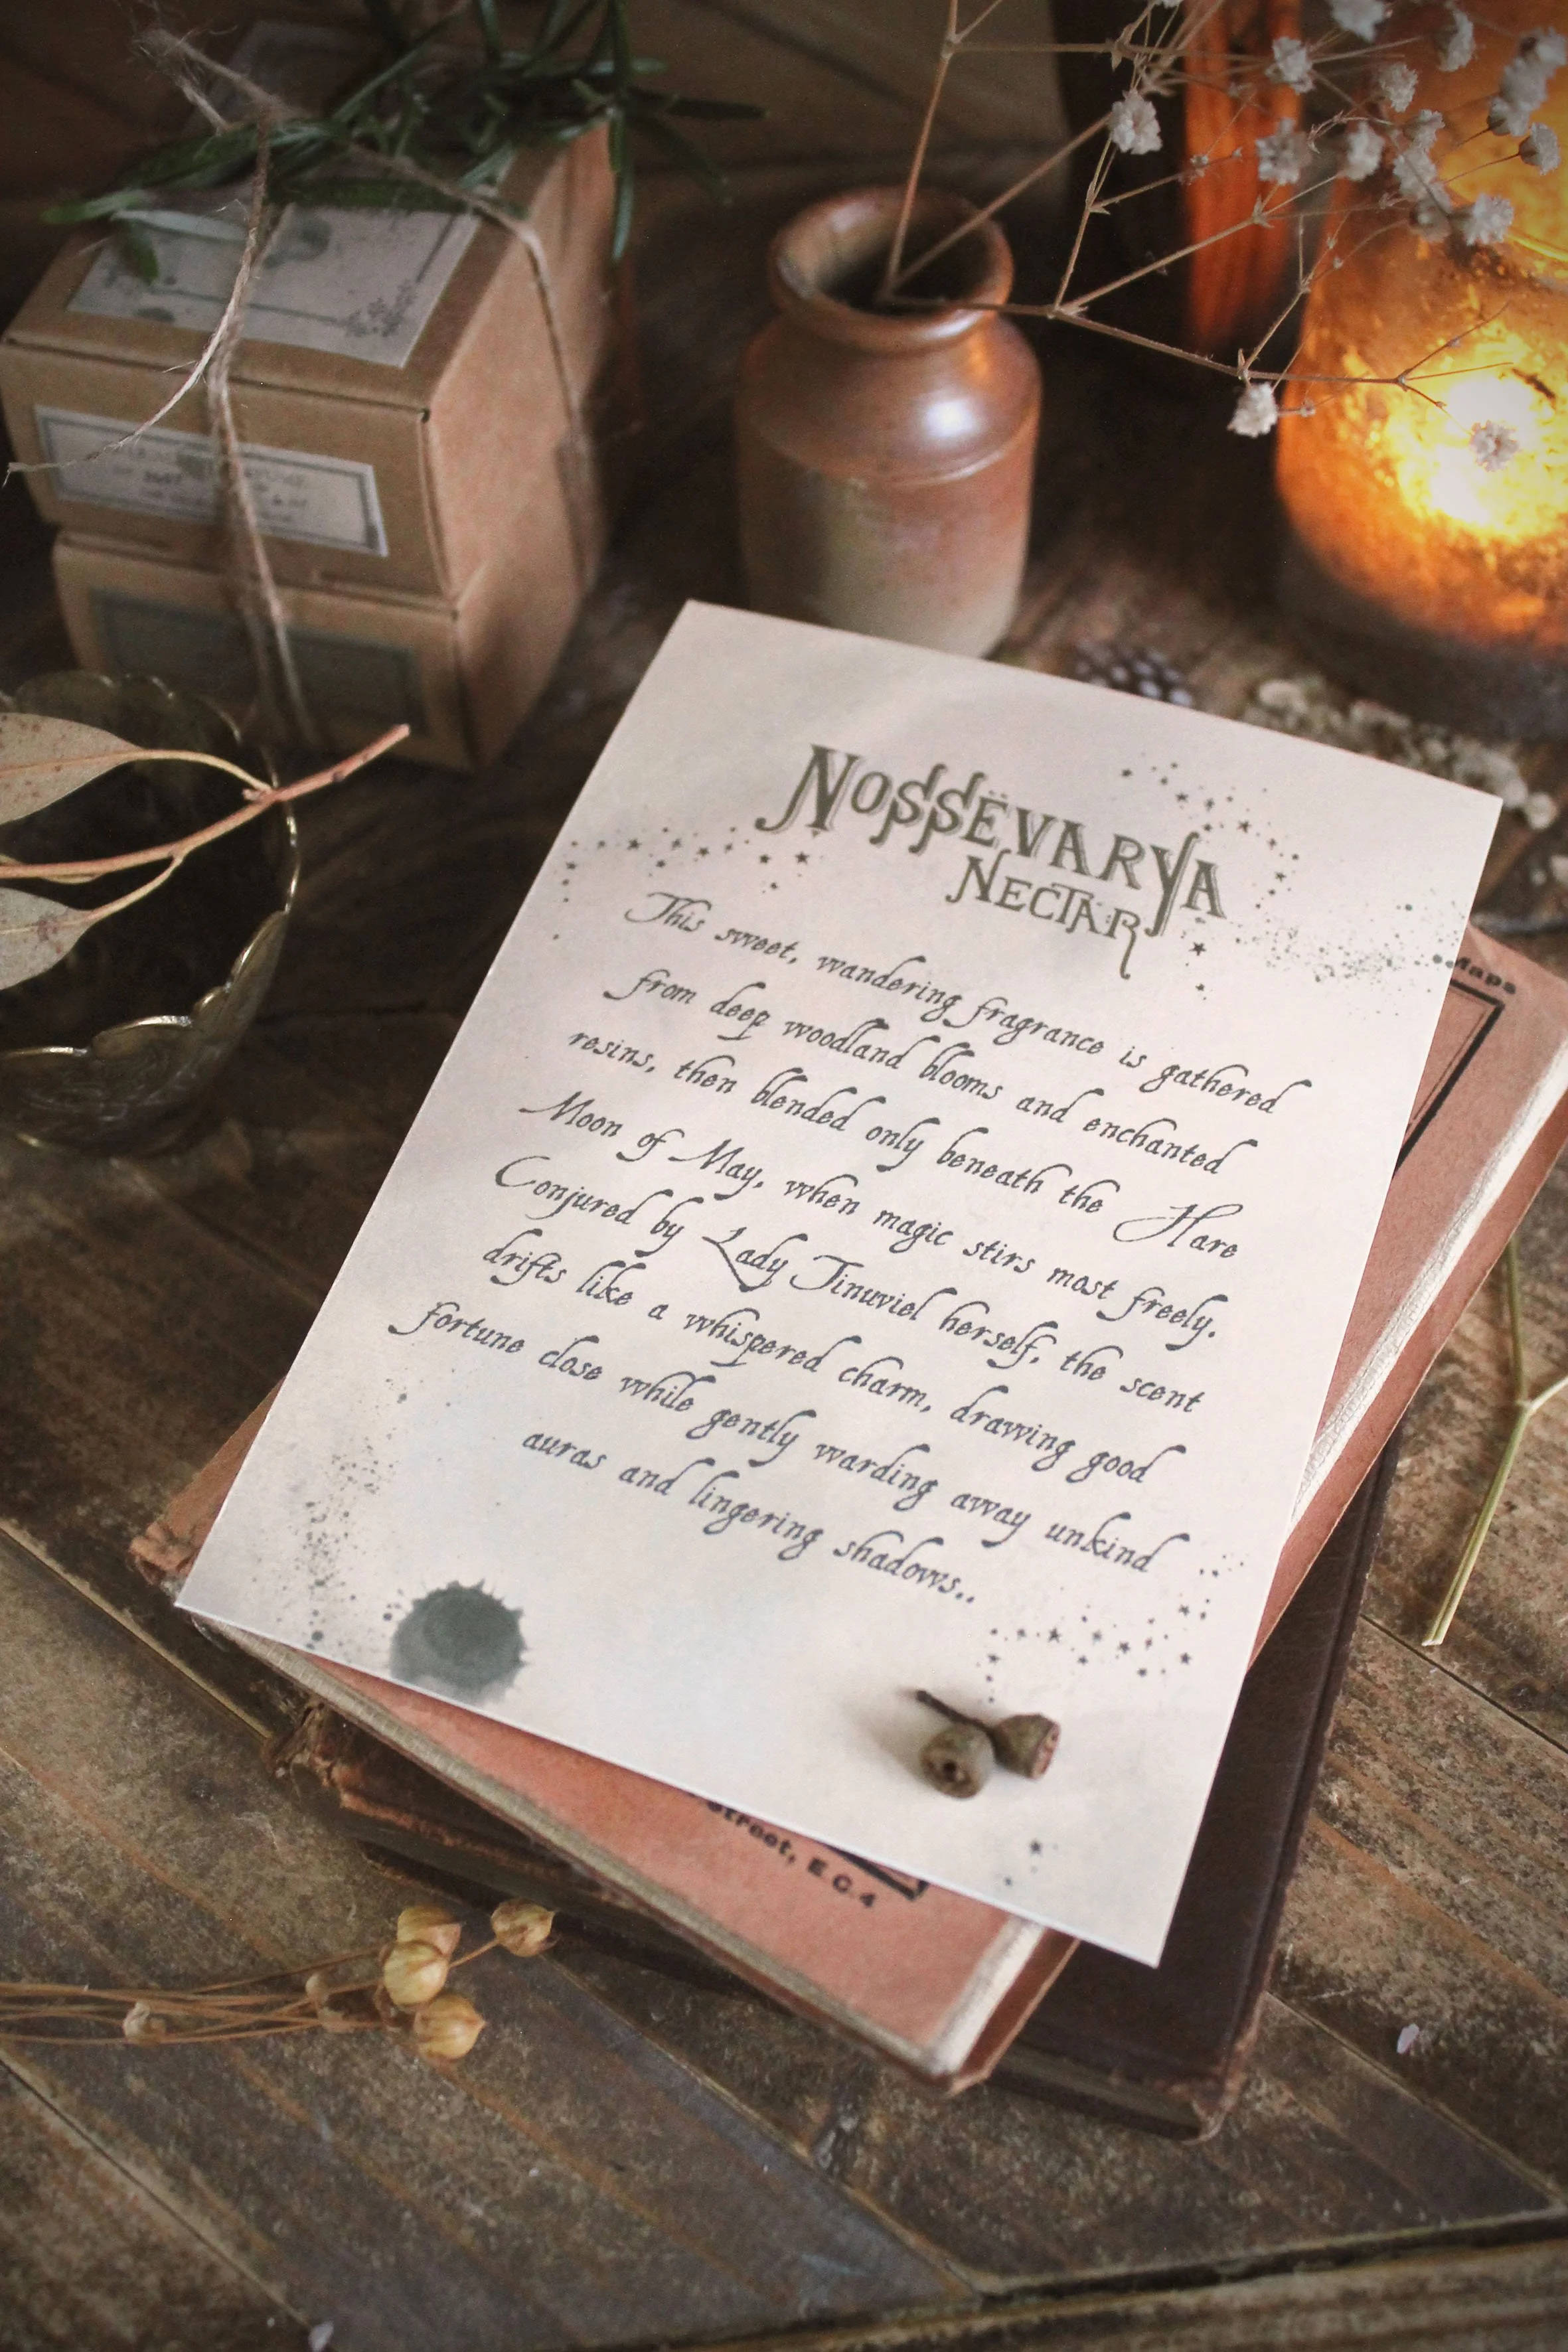 NOSSËVARYA
NECTAR
This sweet, wandering fragrance is gathered
from deep woodland blooms and enchanted
resins, then blended only beneath the Hare
Moon of May, when magic stirs most freely.
Conjured by Lady Tinuviel herself, the scent
drifts like a whispered charm, drawing good
fortune close while gently warding away unkind
auras and lingering shadows..
Maps
Street, E.C.4